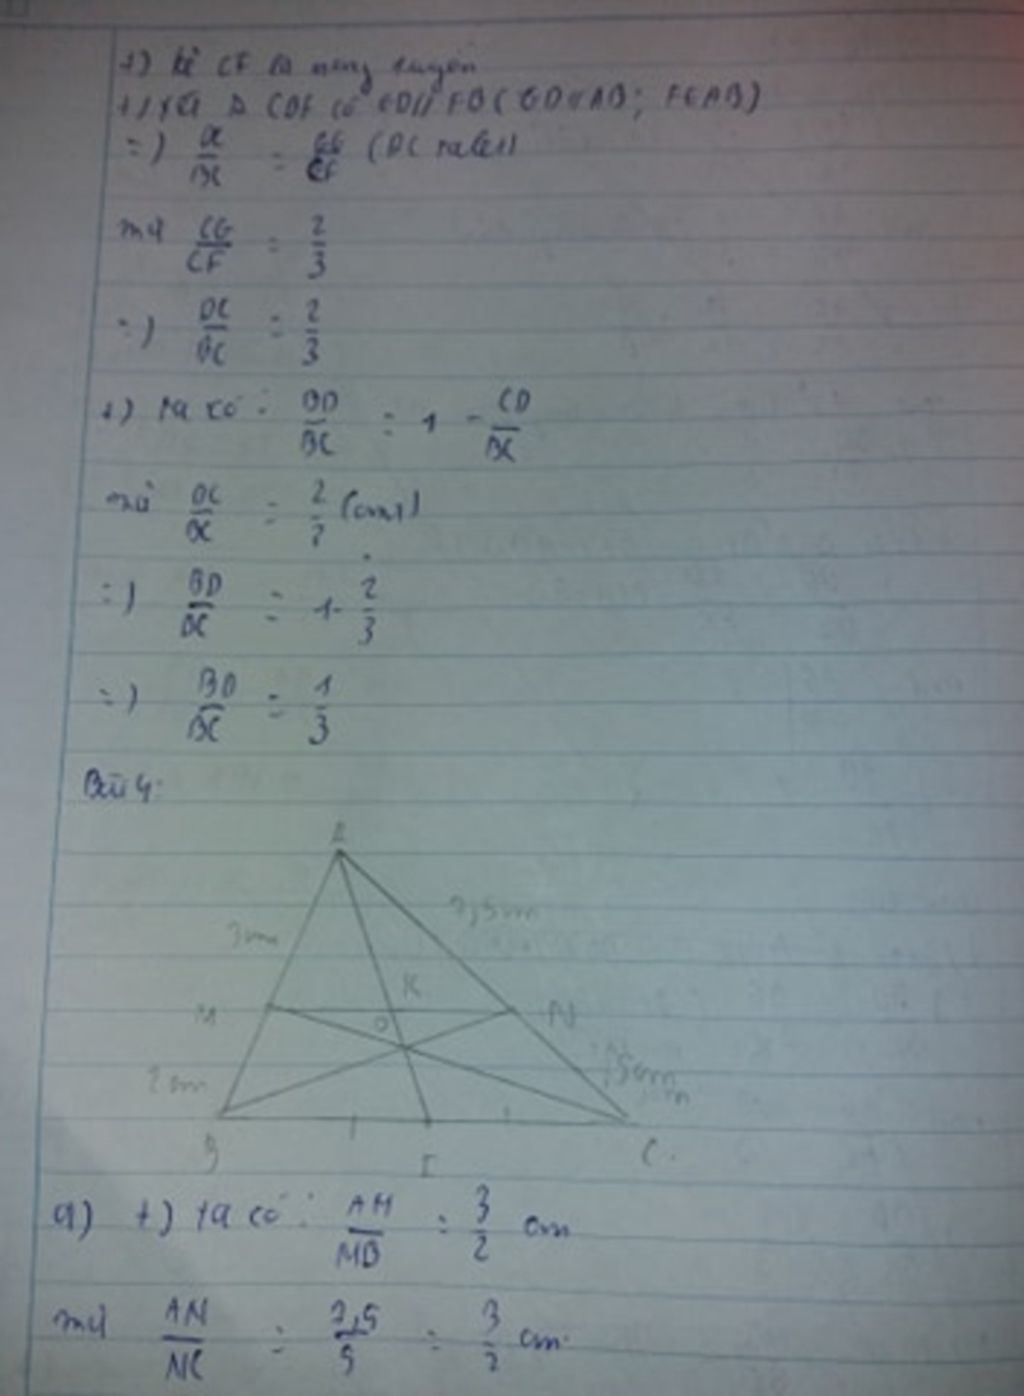 +) kẻ CF là trung tuyến
+) xét Δ CBF có GD // FB ( GD // AB ; F ∈ AB )
=) DC/BC = CG/CF (ĐL
mà CG/CF = 2/3
=) DC/BC = 2/3
+) ta có : BD/BC = 1 - CD/BC
mà DC/BC = 2/3 (cmt)
=) BD/BC = 1 - 2/3
=) BD/BC = 1/3
Bài 4:
A
3cm
7,5cm
M
K
N
O
2cm
5cm
B
I
C
a) +) ta có : AM/MB = 3/2 cm
mà AN/NC = 7,5/5 = 3/2 cm